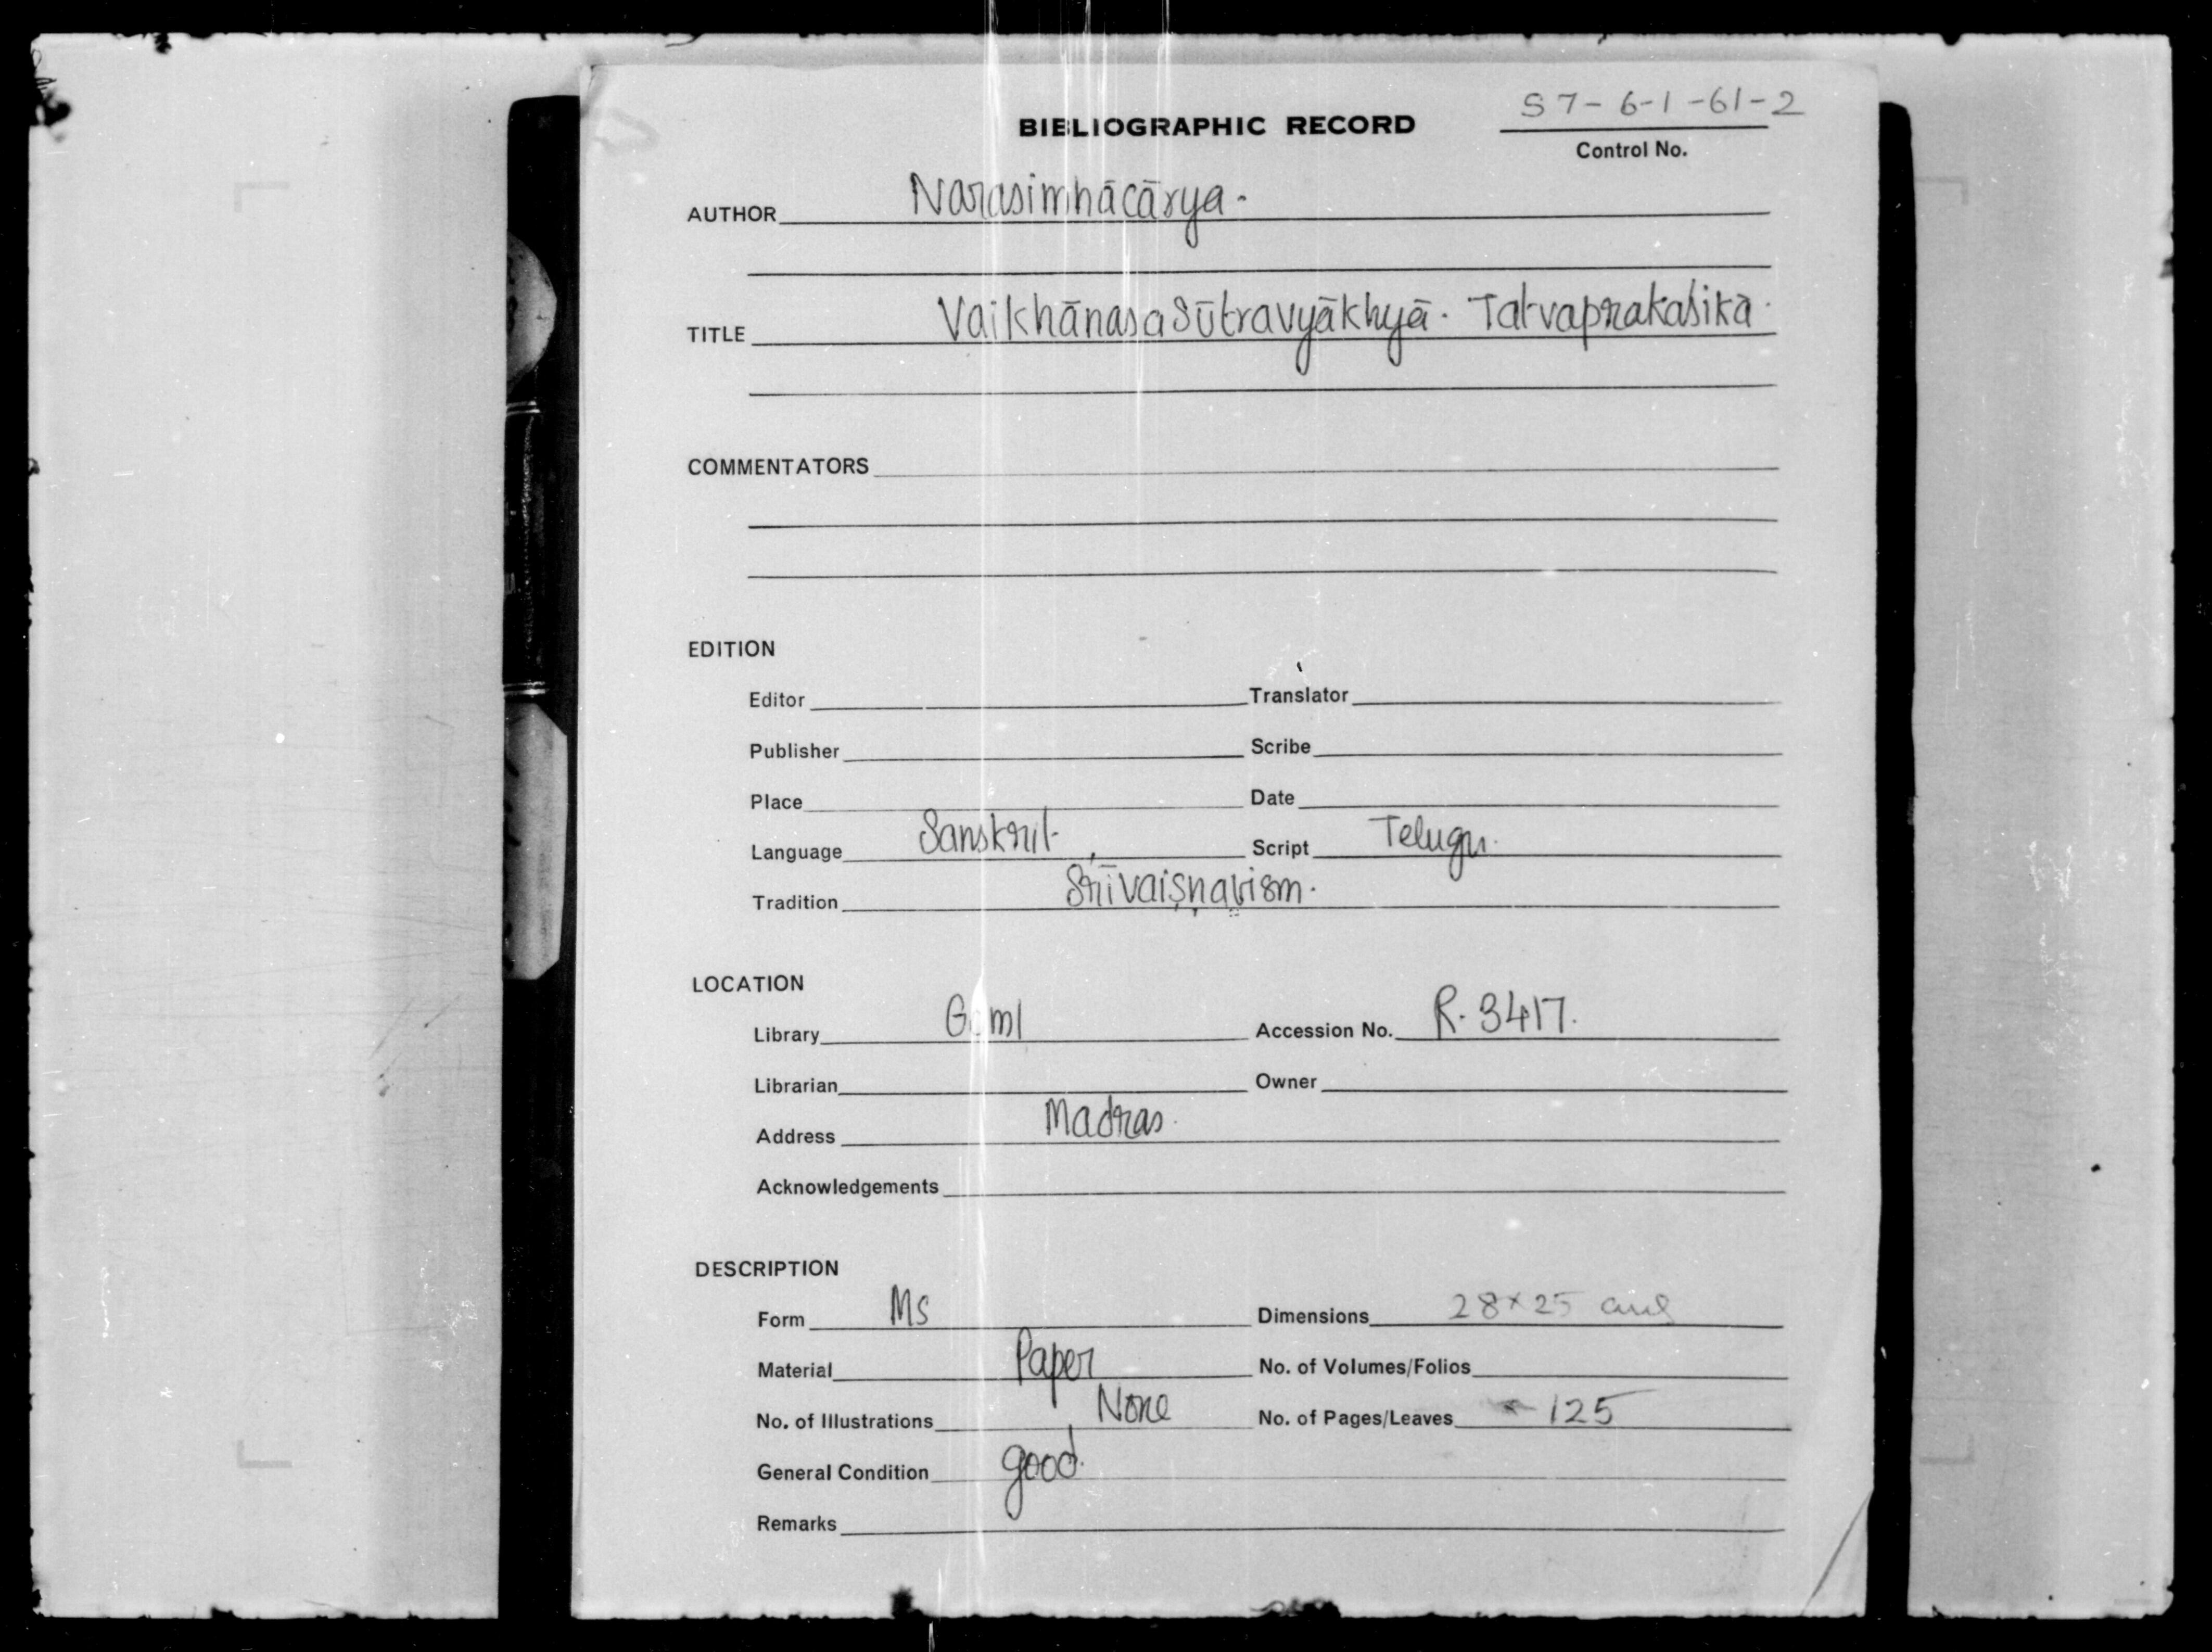 S7-6-1-61-2
BIBLIOGRAPHIC RECORD
Control No.
AUTHOR Narasimhācārya.
TITLE Vaikhānasa Sūtravyākhyā. Tatvaprakasikā.
COMMENTATORS
EDITION
Editor Translator
Publisher Scribe
Place Date
Language Sanskrit Script Telugu.
Tradition Śrīvaiṣṇavism.
LOCATION
Library Goml Accession No. R. 3417.
Librarian Owner
Address Madras.
Acknowledgements
DESCRIPTION
Form Ms Dimensions 28×25
Material Paper No. of Volumes/Folios
No. of Illustrations None No. of Pages/Leaves 125
General Condition good.
Remarks